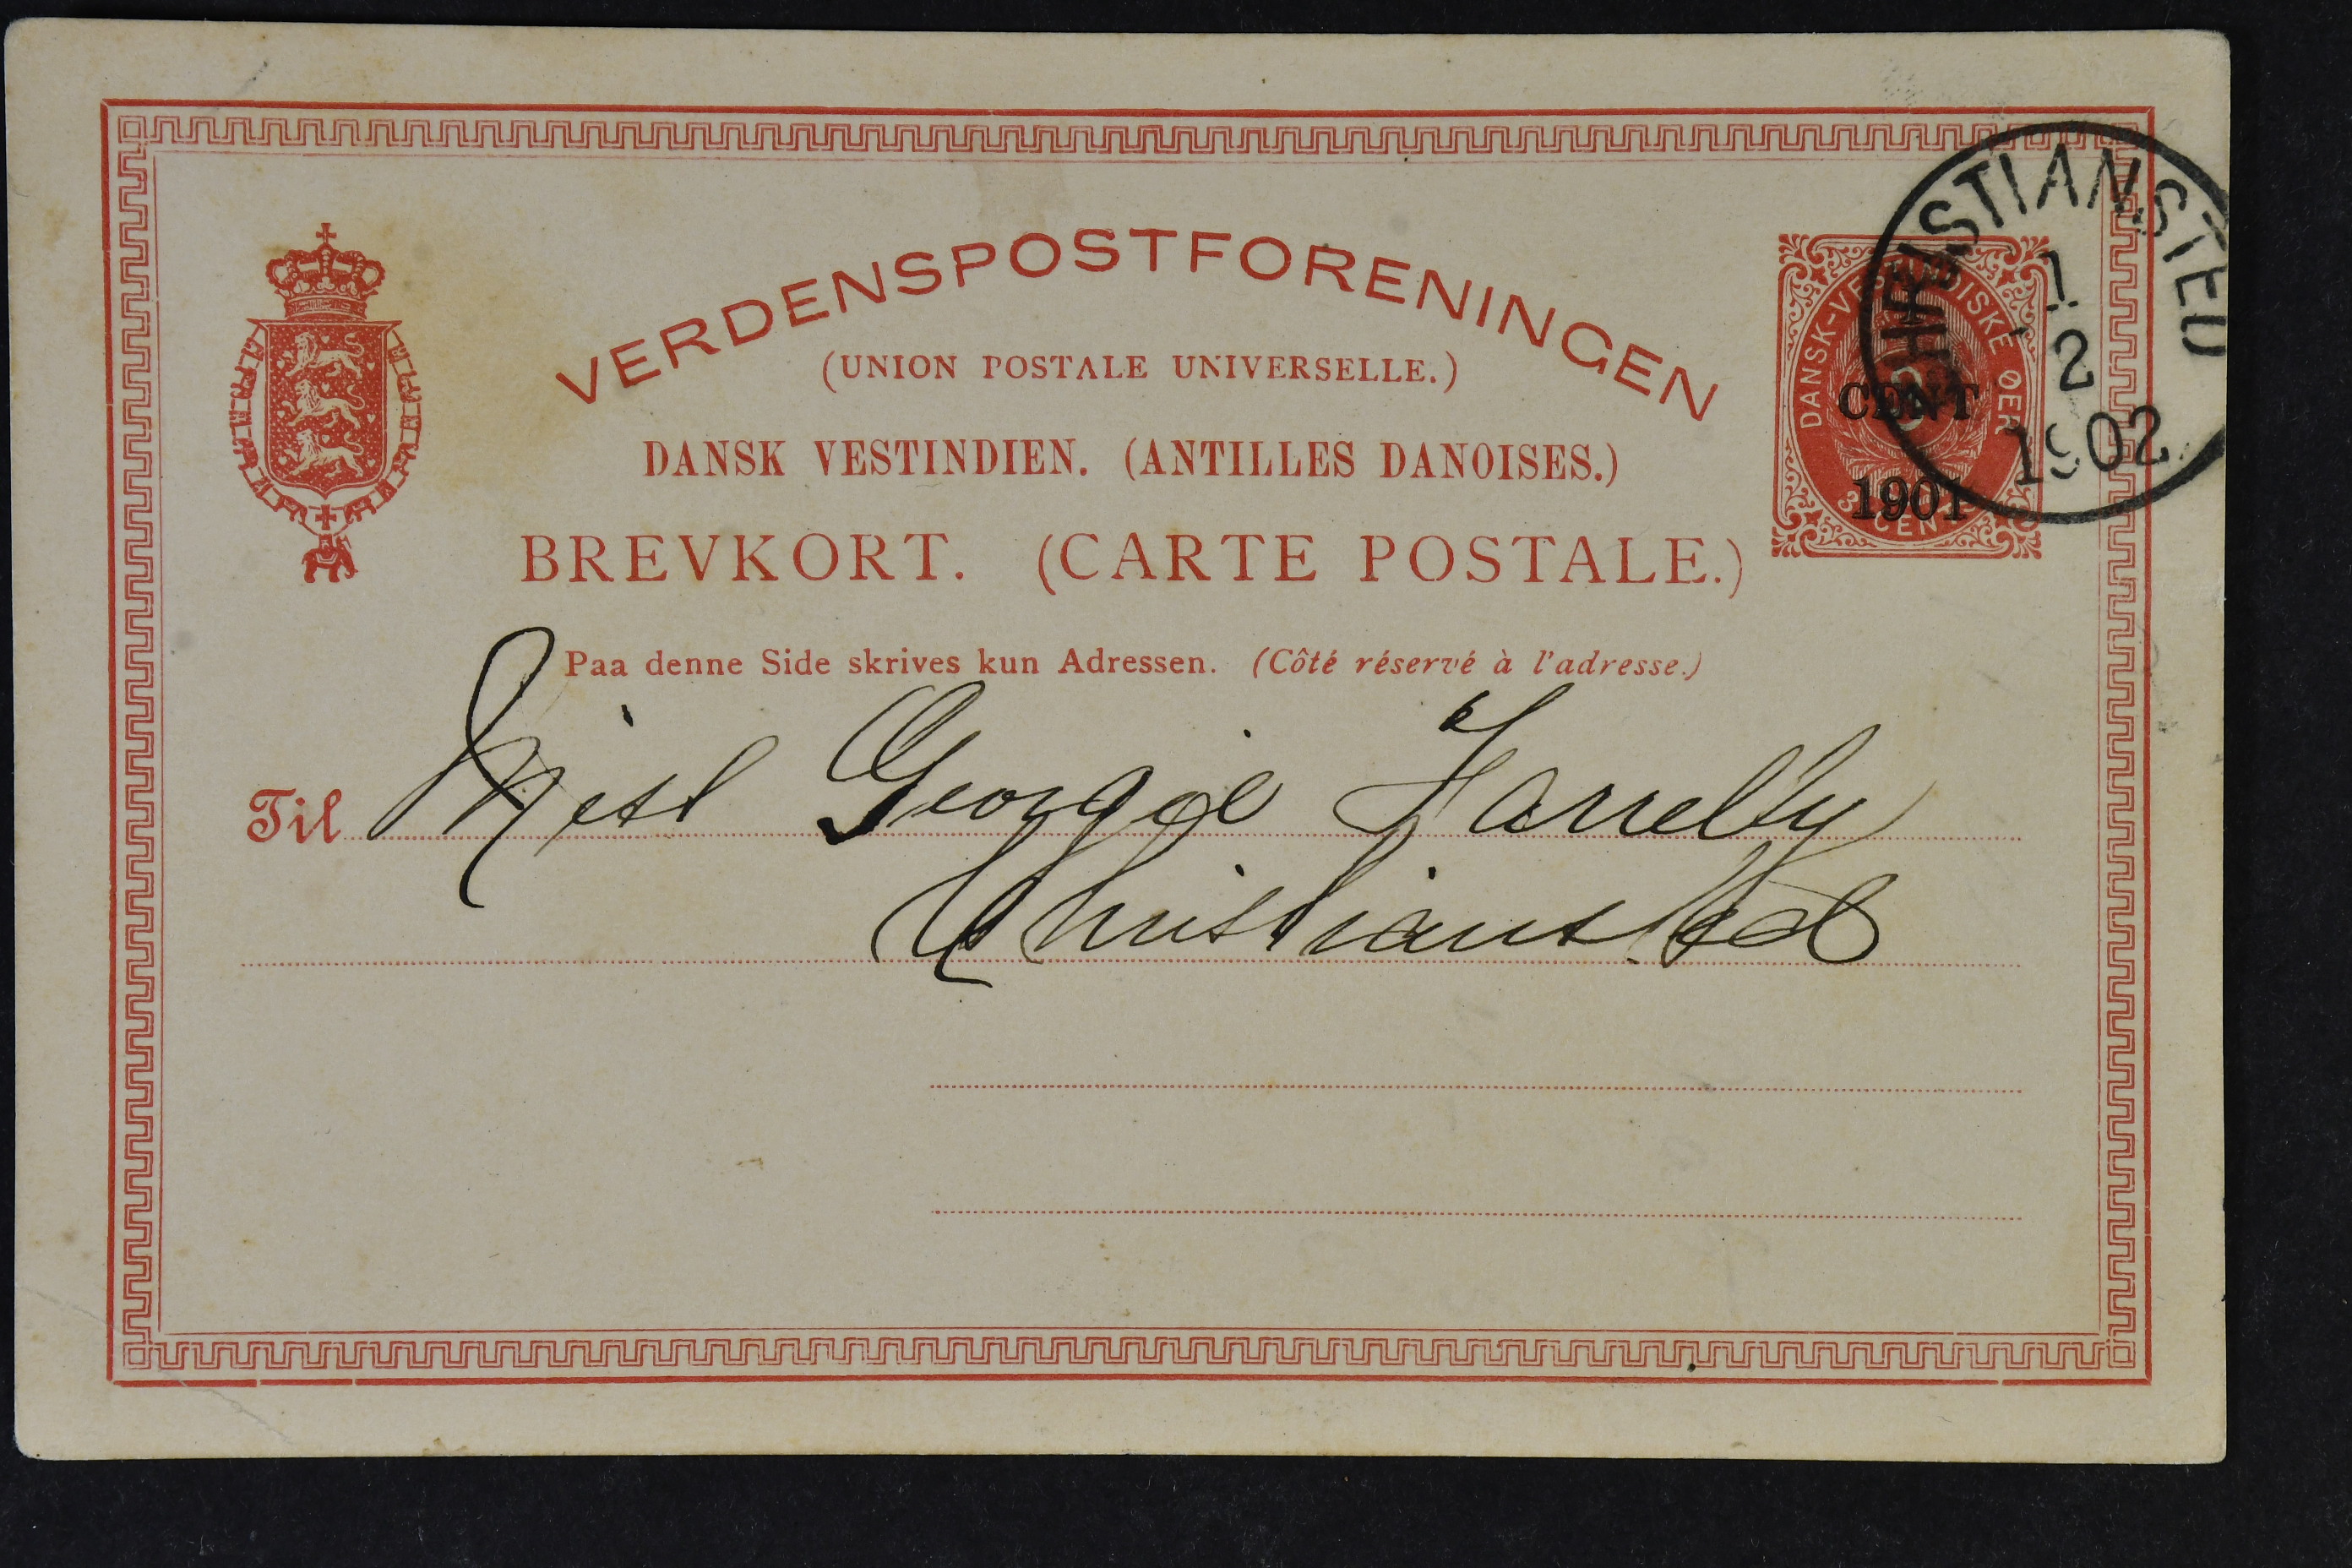 VERDENSPOSTFORENINGEN
(UNION POSTALE UNIVERSELLE.)
DANSK VESTINDIEN. (ANTILLES DANOISES.)
BREVKORT. (CARTE POSTALE.)
DANSK-VESTINDISKE ØER
3 CENTS
CENT
1901
CHRISTIANSTED
1
2
1902
Paa denne Side skrives kun Adressen. (Côté réservé à l'adresse.)
Til Miss Georgie Farrelly
Christiansted